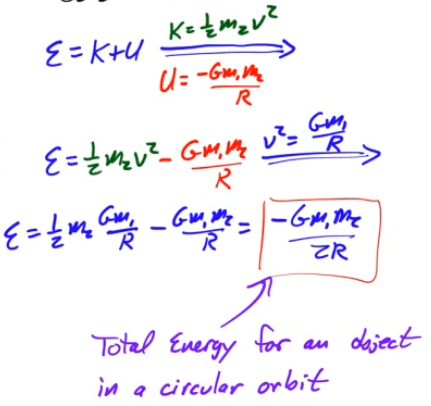 K=½m₂v²
Ɛ=K+U
U=-Gm₁m₂/R
Ɛ=½m₂v²-Gm₁m₂/R v²=Gm₁/R
Ɛ=½m₂ Gm₁/R - Gm₁m₂/R = -Gm₁m₂/2R
Total Energy for an object
in a circular orbit